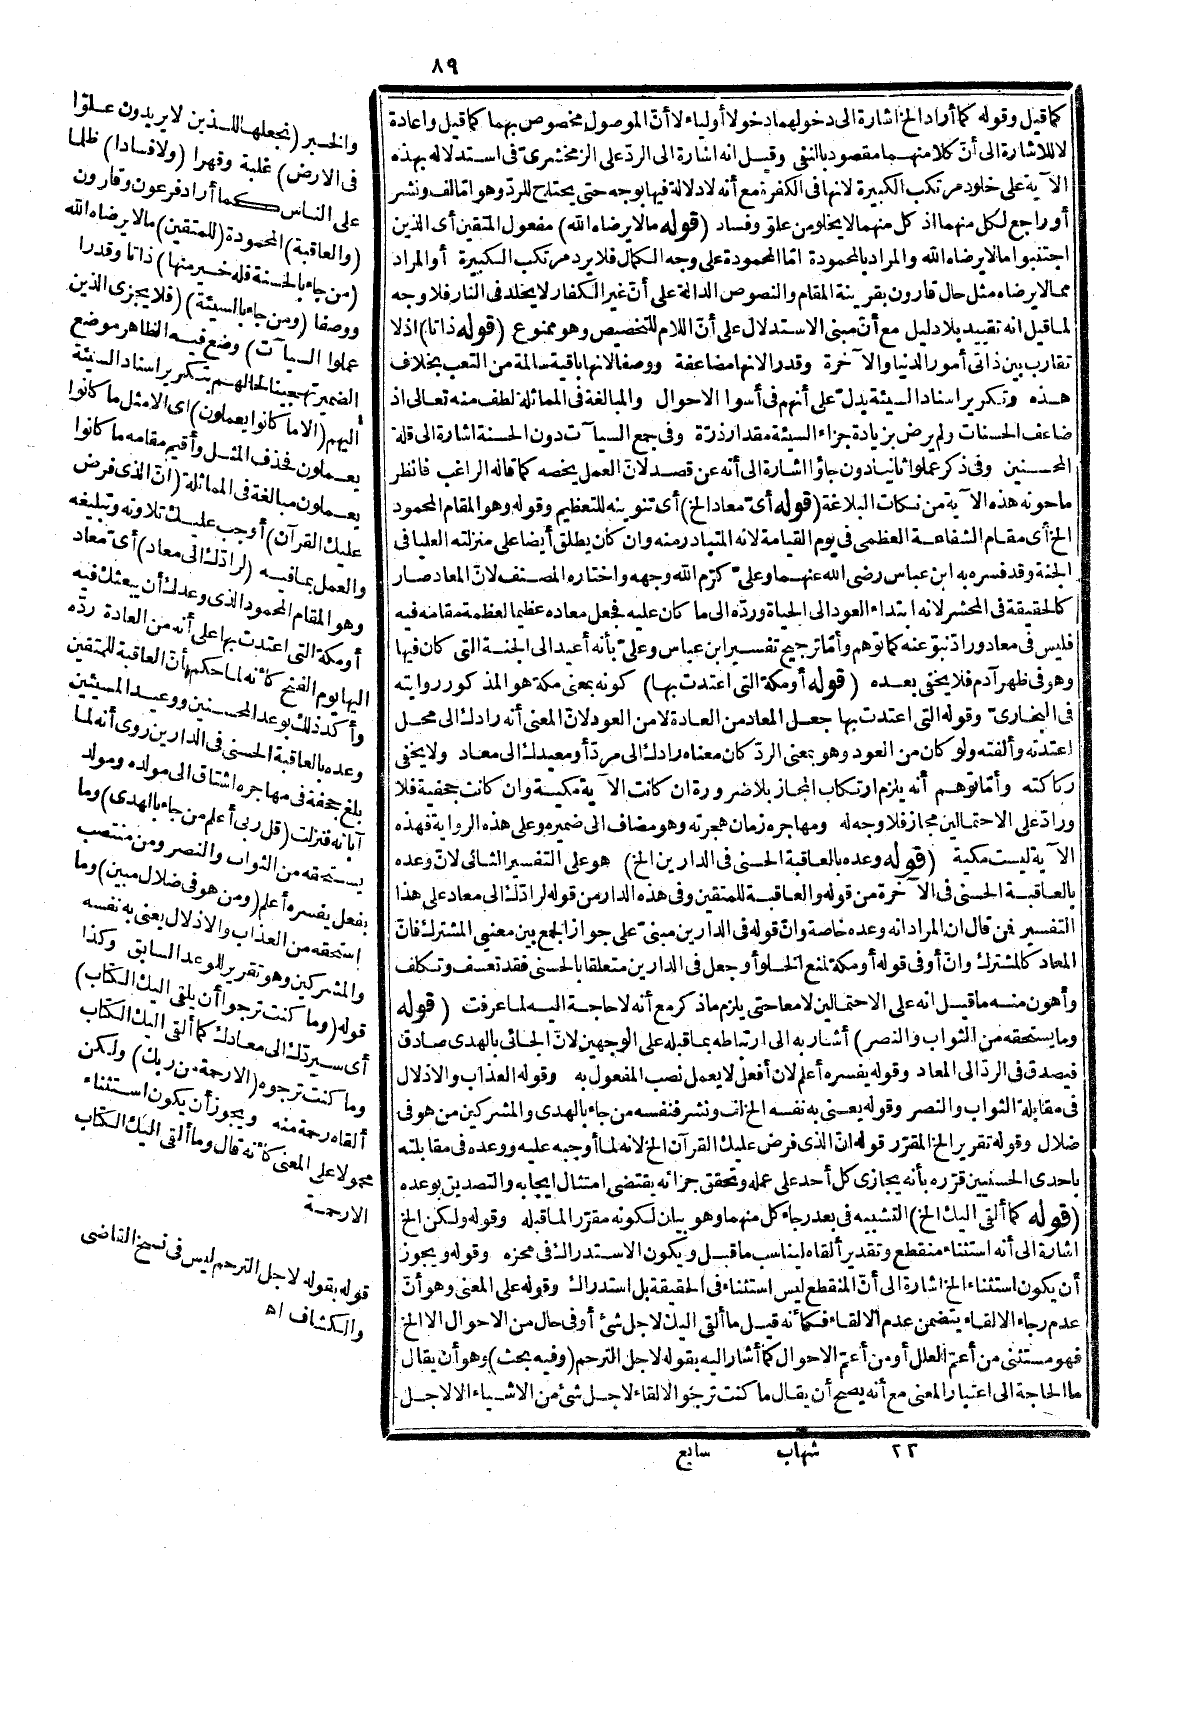 ٨٩
كما قيل وقوله كما أراد الخ اشارة الى دخولهما دخولا أولياء لا أنّ الموصول مخصوص بهما كما قيل واعادة
لا للاشارة الى أنّ كلا منهما مقصود بالنفي وقيل انه اشارة الى الردّ على الزمخشريّ فى استدلاله بهذه
الآية على خلود مرتكب الكبيرة لانها فى الكفرة مع أنه لا دلالة فيها بوجه حتى يحتاج للردّ وهو امّا لف ونشر
أو راجع لكل منهما اذ كل منهما لا يخلو من علوّ وفساد (قوله ما لا يرضاه الله) مفعول المتقين أى الذين
اجتنبوا ما لا يرضاه الله والمراد بالمحمودة امّا المحمودة على وجه الكمال فلا يرد مرتكب الكبيرة أو المراد
مما لا يرضاه مثل حال قارون بقرينة المقام والنصوص الدالة على أنّ غير الكفار لا يخلد فى النار فلا وجه
لما قيل انه تقييد بلا دليل مع أنّ مبنى الاستدلال على أنّ اللام للتخصيص وهو ممنوع (قوله ذاتا) اذ لا
تقارب بين ذاتى أمور الدنيا والآخرة وقدرا لانها مضاعفة ووصفا لانها باقية سالمة من التعب بخلاف
هذه وتكرير اسناد السيئة يدلّ على أنهم فى أسوا الاحوال والمبالغة فى المماثلة لطف منه تعالى اذ
ضاعف الحسنات ولم يرض بزيادة جزاء السيئة مقدار ذرّة وفى جمع السيآت دون الحسنة اشارة الى قلة
المحسنين وفى ذكر عملوا ثانيا دون جاؤا اشارة الى أنه عن قصد لانّ العمل يخصه كما قاله الراغب فانظر
ما حوته هذه الآية من نكات البلاغة (قوله أىّ معاد الخ) أى تنوينه للتعظيم وقوله وهو المقام المحمود
الخ أى مقام الشفاعة العظمى فى يوم القيامة لانه المتبادر منه وان كان يطلق أيضا على منزلته العليا فى
الجنة وقد فسره به ابن عباس رضى الله عنهما وعلىّ كرّم الله وجهه واختاره المصنف لانّ المعاد صار
كالحقيقة فى المحشر لانه ابتداء العود الى الحياة وردّه الى ما كان عليه فجعل معاده عظيما لعظمة مقامه فيه
فليس فى معاد ورادّ نبوّ عنه كما توهم وأمّا ترجيح تفسير ابن عباس وعلىّ بأنه أعيد الى الجنة التى كان فيها
وهو فى ظهر آدم فلا يخفى بعده (قوله أو مكة التى اعتدت بها) كونه بمعنى مكة هو المذكور روايته
فى البخارىّ وقوله التى اعتدت بها جعل المعاد من العادة لا من العود لانّ المعنى أنه رادك الى محل
اعتدته وألفته ولو كان من العود وهو بمعنى الردّ كان معناه رادك الى مردّ أو معيدك الى معاد ولا يخفى
ركاكته وأمّا توهم أنه يلزم ارتكاب المجاز بلا ضرورة ان كانت الآية مكية وان كانت جحفية فلا
ورادّ على الاحتمالين مجاز فلا وجه له ومهاجره زمان هجرته وهو مضاف الى ضميره وعلى هذه الرواية فهذه
الآية ليست مكية (قوله وعده بالعاقبة الحسنى فى الدارين الخ) هو على التفسير الثانى لانّ وعده
بالعاقبة الحسنى فى الآخرة من قوله والعاقبة للمتقين وفى هذه الدار من قوله لرادّك الى معاد على هذا
التفسير فمن قال ان المراد انه وعده خاصة وانّ قوله فى الدارين مبنىّ على جواز الجمع بين معنيى المشترك فانّ
المعاد كالمشترك وانّ أو فى قوله أو مكة لمنع الخلو أو جعل فى الدارين متعلقا بالحسنى فقد تعسف وتكلف
وأهون منه ما قيل انه على الاحتمالين لا معا حتى يلزم ما ذكر مع أنه لا حاجة اليه لما عرفت (قوله
وما يستحقه من الثواب والنصر) أشار به الى ارتباطه بما قبله على الوجهين لانّ الجائى بالهدى صادق
فيصدق فى الردّ الى المعاد وقوله يفسره أعلم لان أفعل لا يعمل نصب المفعول به وقوله العذاب والاذلال
فى مقابلة الثواب والنصر وقوله يعنى به نفسه الخ لف ونشر فنفسه من جاء بالهدى والمشركين من هو فى
ضلال وقوله تقرير الخ المقرّر قوله انّ الذى فرض عليك القرآن الخ لانه لما أوجبه عليه ووعده فى مقابلته
باحدى الحسنيين قرّره بأنه يجازى كل أحد على عمله وتحقق جزائه يقتضى امتثال ايجابه والتصديق بوعده
(قوله كما ألقى اليك الخ) التشبيه فى بعد رجاء كل منهما وهو بيان لكونه مقرّر الما قبله وقوله ولكن الخ
اشارة الى أنه استثناء منقطع وتقدير ألقاه ليناسب ما قبل ويكون الاستدراك فى محزه وقوله ويجوز
أن يكون استثناء الخ اشارة الى أنّ المنقطع ليس استثناء فى الحقيقة بل استدراك وقوله على المعنى وهو أنّ
عدم رجاء الالقاء يتضمن عدم الالقاء فكأنه قيل ما ألقى اليك لاجل شئ أو فى حال من الاحوال الا الخ
فهو مستثنى من أعمّ العلل أو من أعمّ الاحوال كما أشار اليه بقوله لاجل الترحم (وفيه بحث) وهو أن يقال
ما الحاجة الى اعتبار المعنى مع أنه يصح أن يقال ما كنت ترجو الالقاء لاجل شئ من الاشياء الا لاجل
٢٢ شهاب سابع
والخبر (نجعلها للذين لا يريدون علوّا
فى الارض) غلبة وقهرا (ولا فسادا) ظلما
على الناس كما أراد فرعون وقارون
(والعاقبة) المحمودة (للمتقين) ما لا يرضاه الله
(من جاء بالحسنة فله خير منها) ذاتا وقدرا
ووصفا (ومن جاء بالسيئة) (فلا يجزى الذين
عملوا السيآت) وضع فيه الظاهر موضع
الضمير تهجينا لحالهم بتكرير اسناد السيئة
اليهم (الا ما كانوا يعملون) اى الا مثل ما كانوا
يعملون فحذف المثل وأقيم مقامه ما كانوا
يعملون مبالغة فى المماثلة (انّ الذى فرض
عليك القرآن) أوجب عليك تلاوته وتبليغه
والعمل بما فيه (لرادّك الى معاد) أىّ معاد
وهو المقام المحمود الذى وعدك أن يبعثك فيه
أو مكة التى اعتدت بها على أنه من العادة ردّه
اليها يوم الفتح كأنه لما حكم بأنّ العاقبة للمتقين
وأكد ذلك بوعد المحسنين ووعيد المسيئين
وعده بالعاقبة الحسنى فى الدارين روى أنه لما
بلغ جحفة فى مهاجره اشتاق الى مولده ومولد
آبائه فنزلت (قل ربى أعلم من جاء بالهدى) وما
يستحقه من الثواب والنصر ومن منتصب
بفعل يفسره أعلم (ومن هو فى ضلال مبين) وما
استحقه من العذاب والاذلال يعنى به نفسه
والمشركين وهو تقرير للوعد السابق وكذا
قوله (وما كنت ترجوا أن يلقى اليك الكتاب)
أى سيردّك الى معادك كما ألقى اليك الكتاب
وما كنت ترجوه (الا رحمة من ربك) ولكن
ألقاه رحمة منه ويجوز أن يكون استثناء
محمولا على المعنى كأنه قال وما ألقى اليك الكتاب
الا رحمة
قوله بقوله لاجل الترحم ليس فى نسخ القاضى
والكشاف اه